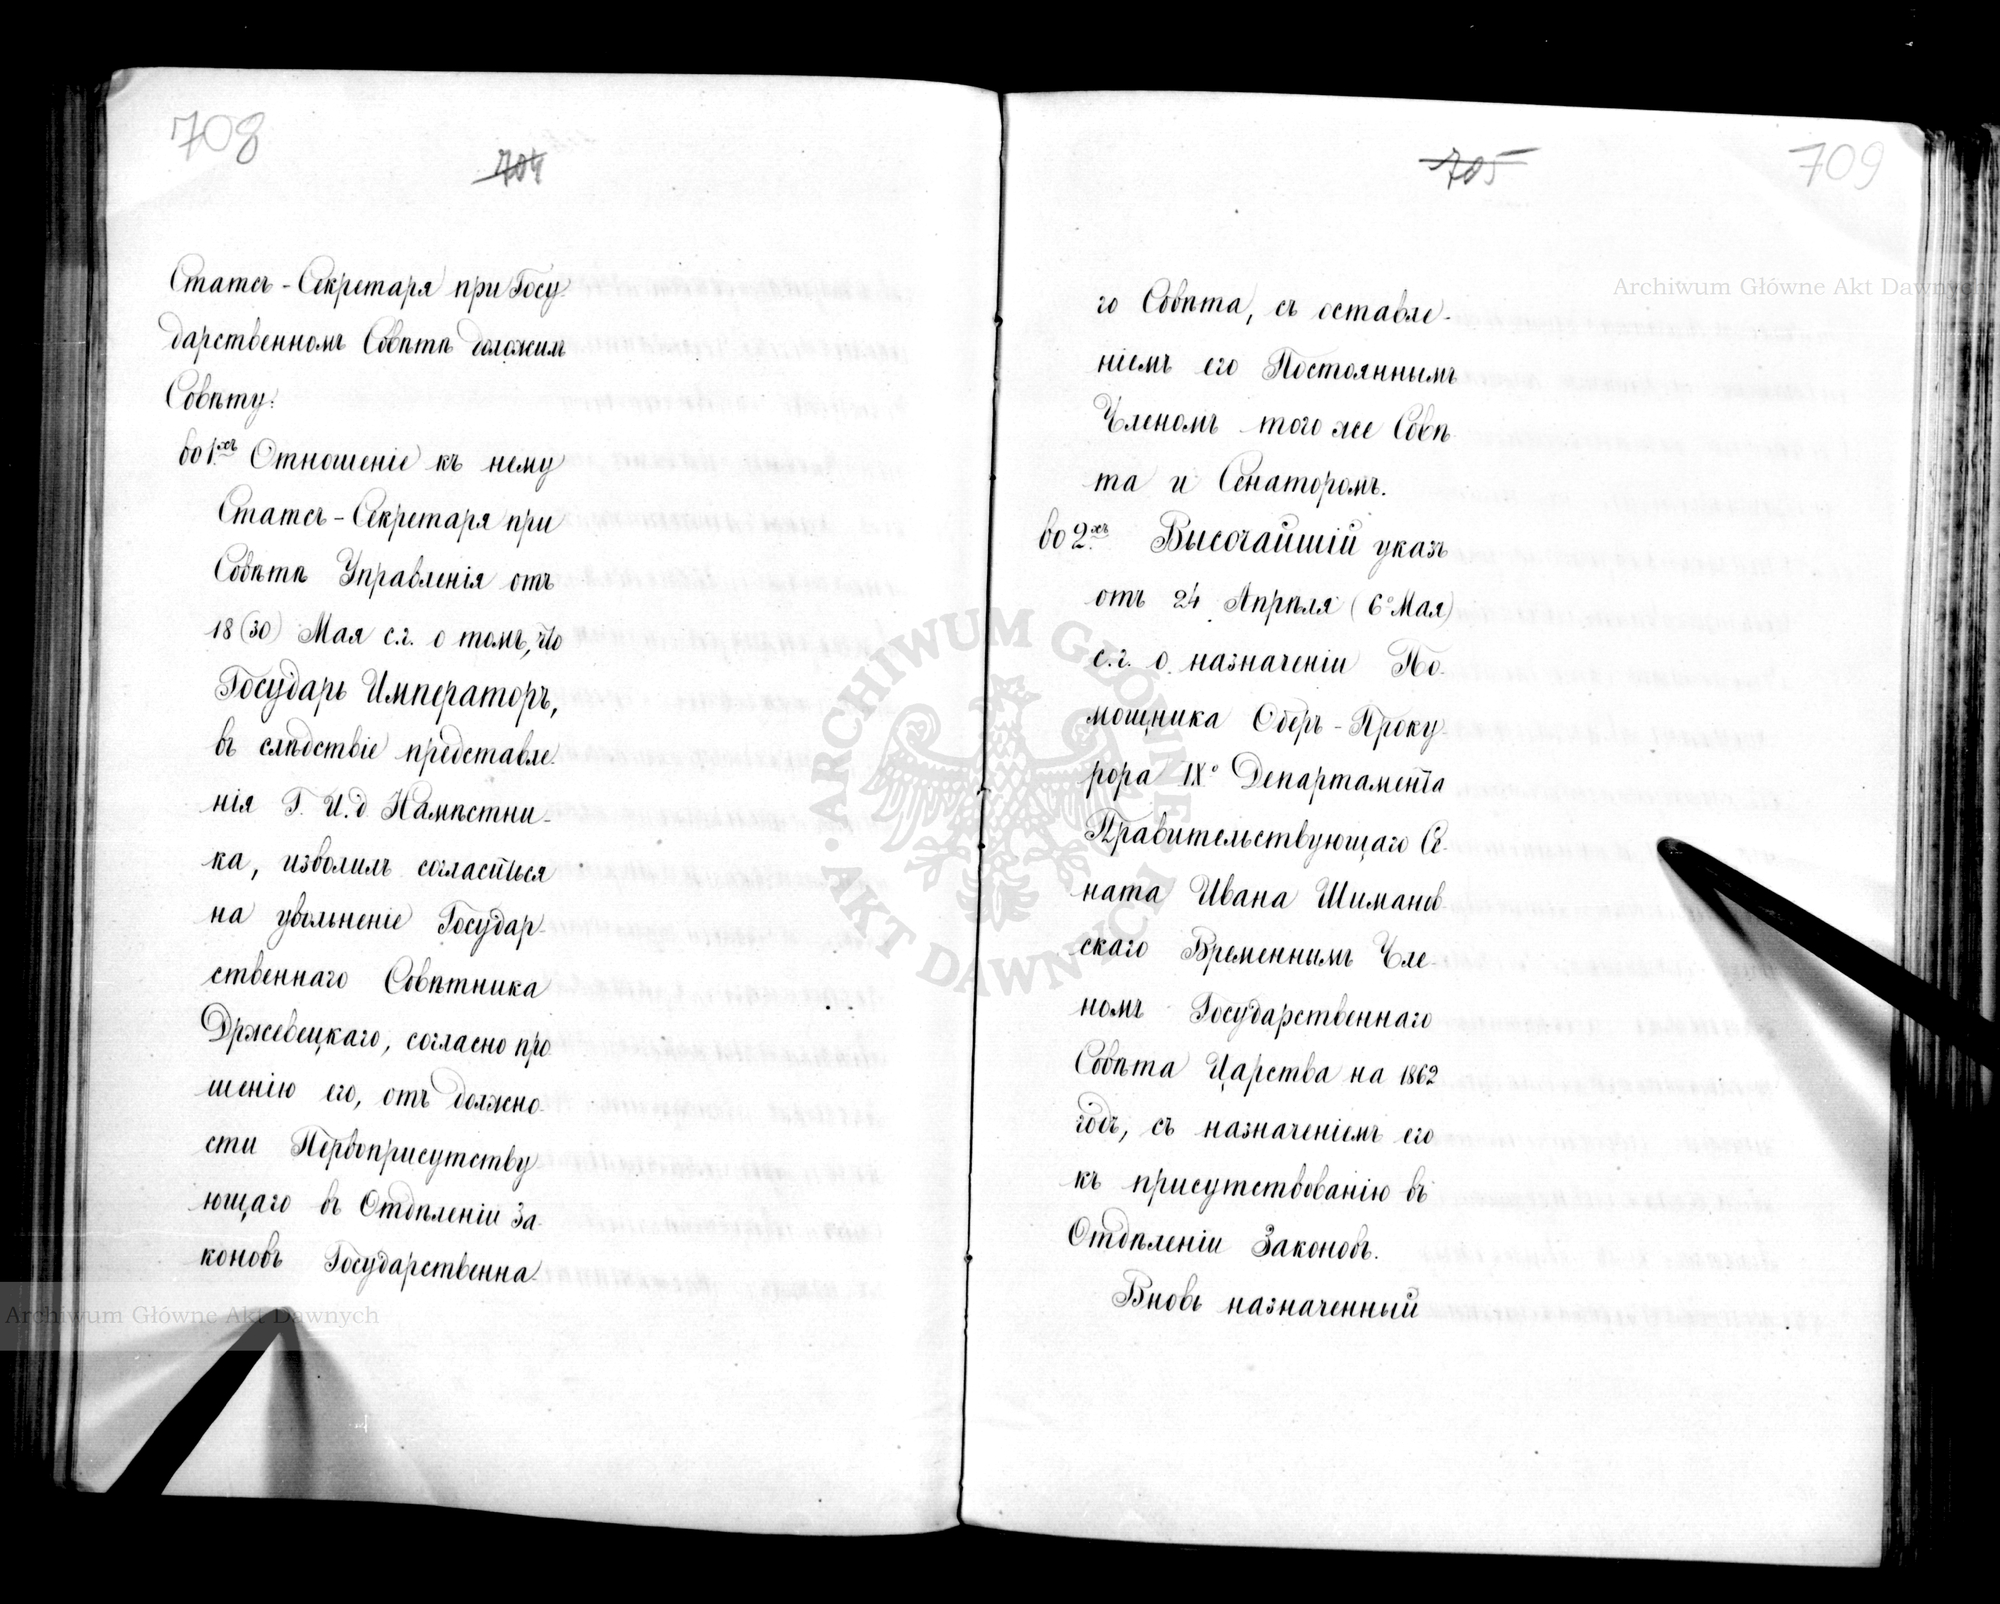 708
704
Статсъ-Секретаря при Госу-
дарственномъ Совѣтѣ доложилъ
Совѣту:
во 1.хъ Отношеніе къ нему
Статсъ-Секретаря при
Совѣтѣ Управленія отъ
18 (30) Мая с.г. о томъ, что
Государь Императоръ,
въ слѣдствіе представле-
нія Г. И.д. Намѣстни-
ка, изволилъ согласиться
на увольненіе Государ-
ственнаго Совѣтника
Држевецкаго, согласно про-
шенію его, отъ должно-
сти Первоприсутству-
ющаго въ Отдѣленіи За-
коновъ Государственна-
705
709
го Совѣта, съ оставле-
ніемъ его Постояннымъ
Членомъ того же Совѣ-
та и Сенаторомъ.
во 2.хъ Высочайшій указъ
отъ 24 Апрѣля (6º Мая)
с.г. о назначеніи По-
мощника Оберъ-Проку-
рора IX.º Департамента
Правительствующаго Се-
ната Ивана Шиманов-
скаго Временнымъ Чле-
номъ Государственнаго
Совѣта Царства на 1862
годъ, съ назначеніемъ его
къ присутствованію въ
Отдѣленіи Законовъ.
Вновь назначенный
Archiwum Główne Akt Dawnych
Archiwum Główne Akt Dawnych
· ARCHIWUM GŁÓWNE · AKT DAWNYCH